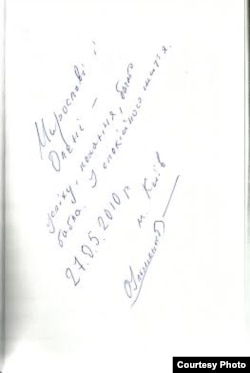 Мирославі і
Олені –
успіху, кохання, багато
бабла. У спокійного життя.
27.05.2010 р.
м. Київ
Courtesy Photo